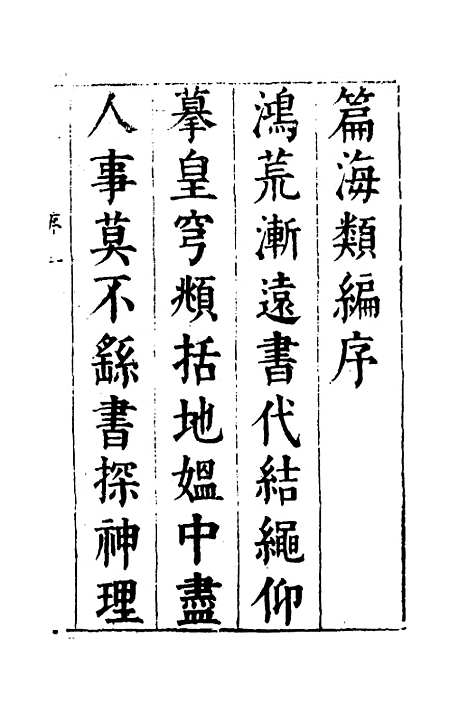 篇海類編序
鴻荒漸遠書代結繩仰
摹皇穹頫括地媼中盡
人事莫不繇書探神理
序 一